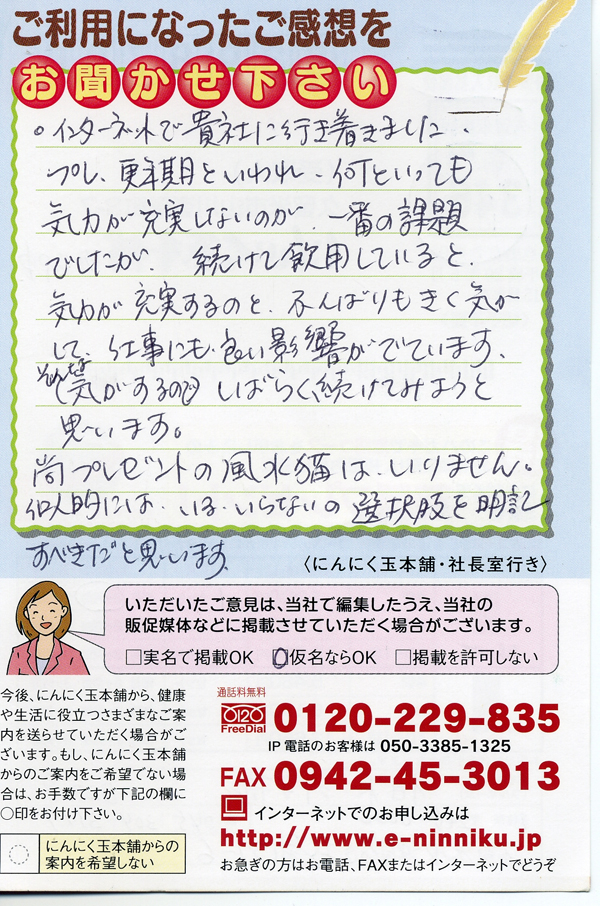 ご利用になったご感想を
お聞かせ下さい
。インターネットで貴社に行き着きました、
プレ、更年期といわれ、何といっても
気力が充実しないのが、一番の課題
でしたが、続けて飲用していると、
気力が充実するのと、ふんばりもきく気が
して、仕事にも良い影響がでています、
そんな
気がするので しばらく続けてみようと
思います。
尚プレゼントの風水猫は、いりません。
個人的には、いる・いらないの選択肢を明記
すべきだと思います
〈にんにく玉本舗・社長室行き〉
いただいたご意見は、当社で編集したうえ、当社の
販促媒体などに掲載させていただく場合がございます。
□実名で掲載OK □仮名ならOK □掲載を許可しない
今後、にんにく玉本舗から、健康
や生活に役立つさまざまなご案
内を送らせていただく場合がご
ざいます。もし、にんにく玉本舗
からのご案内をご希望でない場
合は、お手数ですが下記の欄に
〇印をお付け下さい。
にんにく玉本舗からの
案内を希望しない
通話料無料
FreeDial 0120-229-835
IP電話のお客様は 050-3385-1325
FAX 0942-45-3013
インターネットでのお申し込みは
http://www.e-ninniku.jp
お急ぎの方はお電話、FAXまたはインターネットでどうぞ